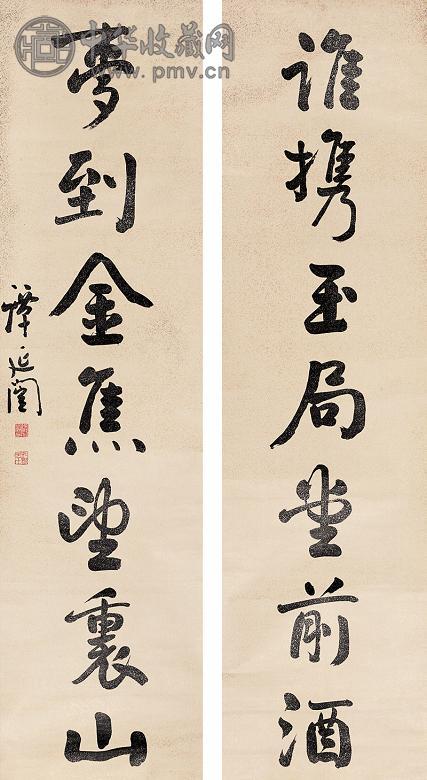 誰携玉局堂前酒
夢到金焦望裏山
譚延闓
中华收藏网
www.pmv.cn